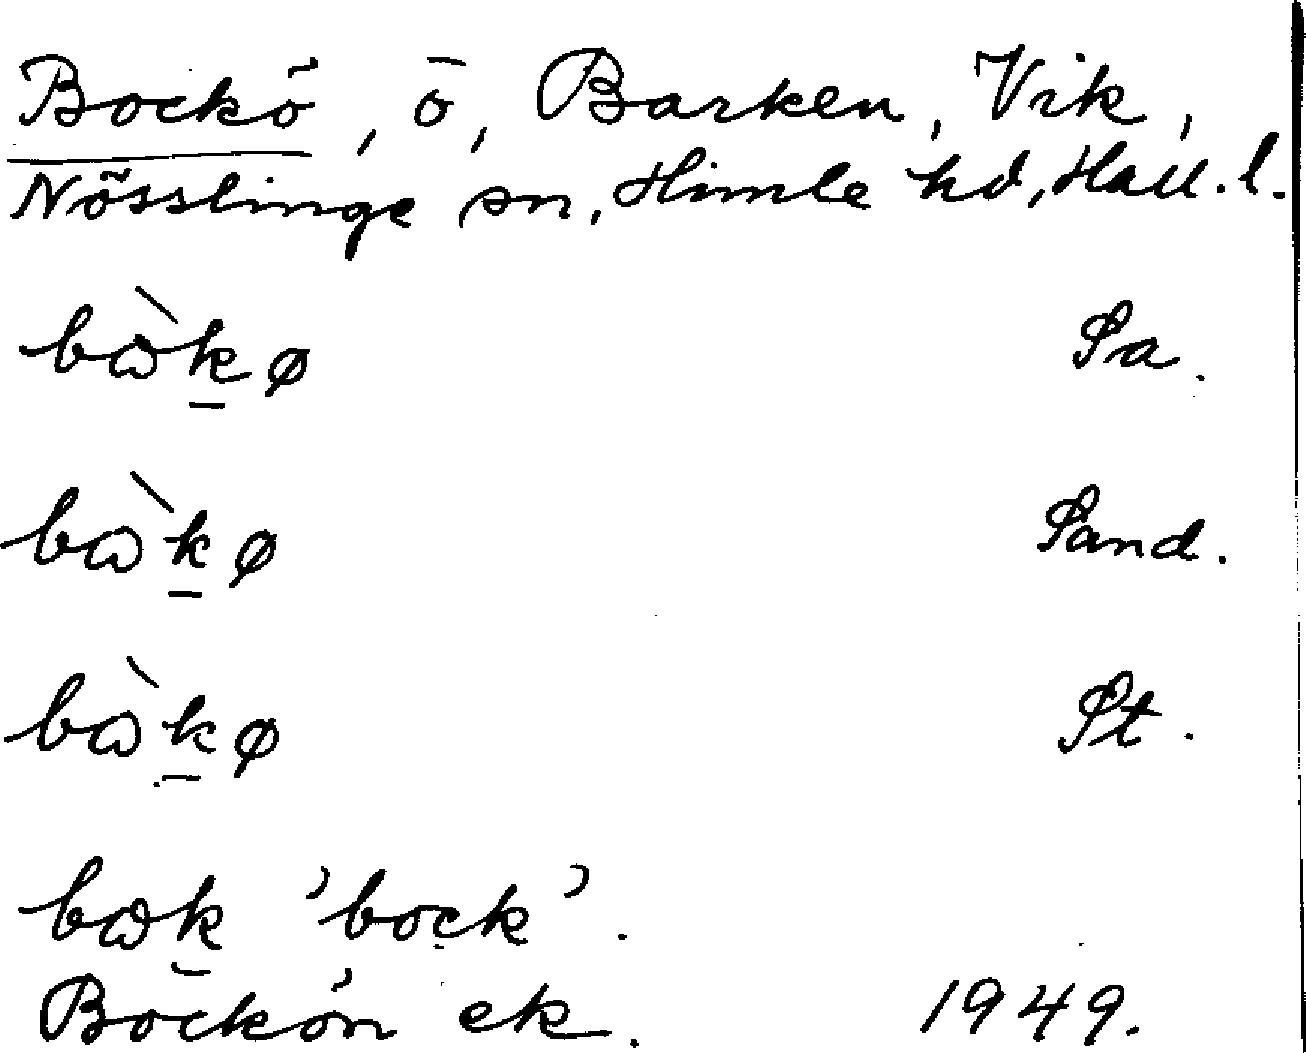 Bockö, ö, Barken, Vik,
Nösslinge sn, Himle hd, Hall. l.
bòk̲ø Sa.
bòk̲ø Sand.
bòk̲ø St.
bok̲ 'bock'.
Bockön ek. 1949.